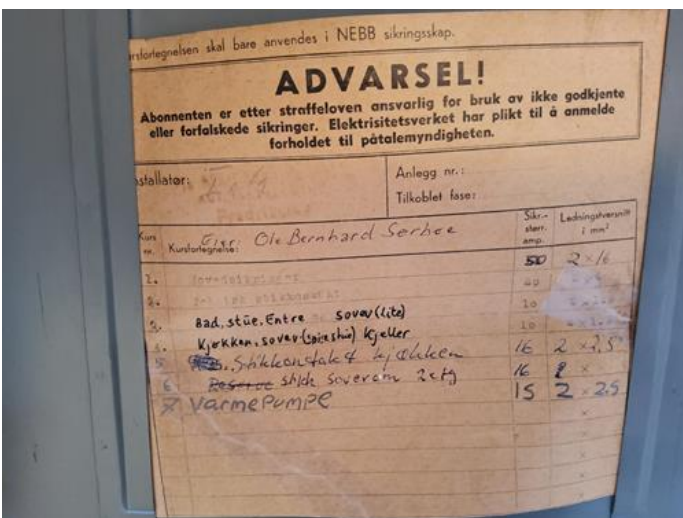 rsfortegnelsen skal bare anvendes i NEBB sikringsskap.
ADVARSEL!
Abonnenten er etter straffeloven ansvarlig for bruk av ikke godkjente
eller forfalskede sikringer. Elektrisitetsverket har plikt til å anmelde
forholdet til påtalemyndigheten.
nstallatør:
Anlegg nr.:
Tilkoblet fase:
Kurs nr. Kursfortegnelse: Eier: Ole Bernhard Sikr.- størr. amp. Ledningstverrsnitt i mm²
1. 50 2×16
2.
3. Bad, stue, Entre sovev (lite) 10
4. Kjøkken, sovev Kjeller 10
5 Stikkontakt kjøkken 16 2 × 2,5
6 Reserve stikk soverom 2 etg 16 2 ×
7 Varmepumpe 15 2 × 2,5